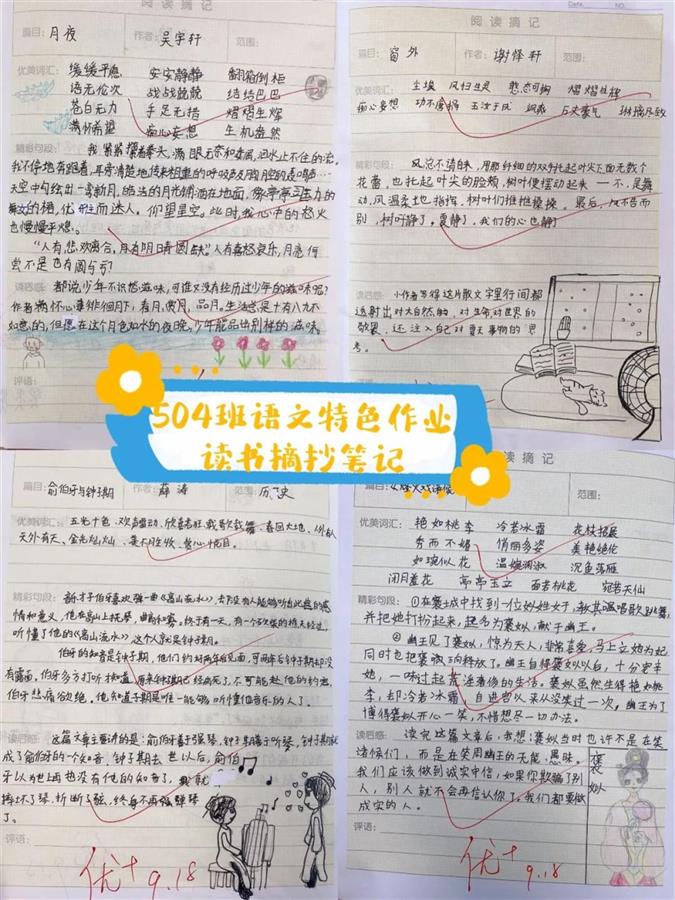 阅读摘记
篇目：月夜 作者：吴宇轩 范围：
优美词汇：缓缓平息 安安静静 翻箱倒柜
语无伦次 战战兢兢 结结巴巴
苍白无力 手足无措 熠熠生辉
满怀希望 痴心妄想 生机盎然
精彩句段：我紧紧攥着拳头，满眼无奈和委屈，泪水止不住的流。
天空中勾绘出一弯新月，皎洁的月光铺洒在地面，
而迷人。仰望星空。此时，我心中的怒火
也慢慢平熄。
“人有悲欢离合，月有阴晴圆缺。”人有喜怒哀乐，月亮何
尝不是也有圆与亏？
读后感：都说少年不识愁滋味，可谁又没有经历过少年的滋味呢？
作者满怀心事徘徊月下，看月，赏月，品月。生活总是十有八九不
如意的，但愿在这个月色如水的夜晚，少年能品出别样的滋味。
评语：
阅读摘记
篇目：窗外 作者：谢怿轩 范围：
优美词汇：尘埃 风扫生灵 憨态可掬 熠熠生辉
痴心妄想 功不唐捐 玉汝于成 飒爽
精彩句段：风忽不请自来，用那纤细的双手托起叶尖下面无数个
花蕾，也托起叶尖的脸颊，树叶便摆动起来——不，是舞
动，风温柔地指挥，树叶们推推搡搡。最后，风不告而
别，树叶静了，夏静了，我们的心也静了
读后感：小作者写得这片散文字里行间都
透射出对大自然的，对生命，对世界的
敬畏，还注入自己对夏天事物的思
考。
504班语文特色作业
读书摘抄笔记
篇目：俞伯牙与钟子期 作者：薛涛 历史
优美词汇：五光十色、欢声雷动、欣喜若狂、载歌载舞、春回大地、
天外有天、金光灿灿、美不胜收、赏心悦目。
精彩句段：
听懂了他的《高山流水》这个人就是钟子期。
伯牙的知音是钟子期，他们约好两年后见面，可两年后钟子期却没
有露面。伯牙多方打听才知道，原来钟子期已经病死了，不可能赴他的约定，
伯牙悲痛欲绝。他知道子期是唯一能够听懂他音乐的人了。
读后感：这篇文章主要讲的是：俞伯牙善于弹琴，钟子期善于听琴，钟子期就
成了俞伯牙的个知音，钟子期去世以后，俞伯
牙认为世上再也没有他的知音了，
摔坏了琴，折断了弦，终身不再弹琴
了。
评语：
优+
9.18
阅读摘记
范围：
优美词汇：艳如桃李 冷若冰霜 花枝招展
秀而不媚 俏丽多姿 美艳绝伦
如琬似花 温婉娴淑 沉鱼落雁
闭月羞花 亭亭玉立 面若桃花 宛若天仙
精彩句段：①在褒城中找到一位姒姓女子，教其唱唱歌跳舞，
并把她打扮起来，起名为褒姒，献于幽王。
②幽王见了褒姒，惊为天人，非常喜爱，马上立她为妃，
同时也把褒珦释放了。幽王自得褒姒以后，十分宠幸
她，一味过起荒淫奢侈的生活。褒姒虽然生得艳如桃
李，却冷若冰霜，自进宫以来从没笑过一次，幽王为了
博得褒姒开心一笑，不惜想尽一切办法。
读后感：读完这篇文章后，我想：褒姒当时也许不是在笑
诸侯们，而是在笑周幽王的无能，愚昧。
我们应该做到诚实守信，如果你欺骗了别
人，别人就不会再信认你了。我们都要做
成实的人。
褒姒
评语：
优+
9.18